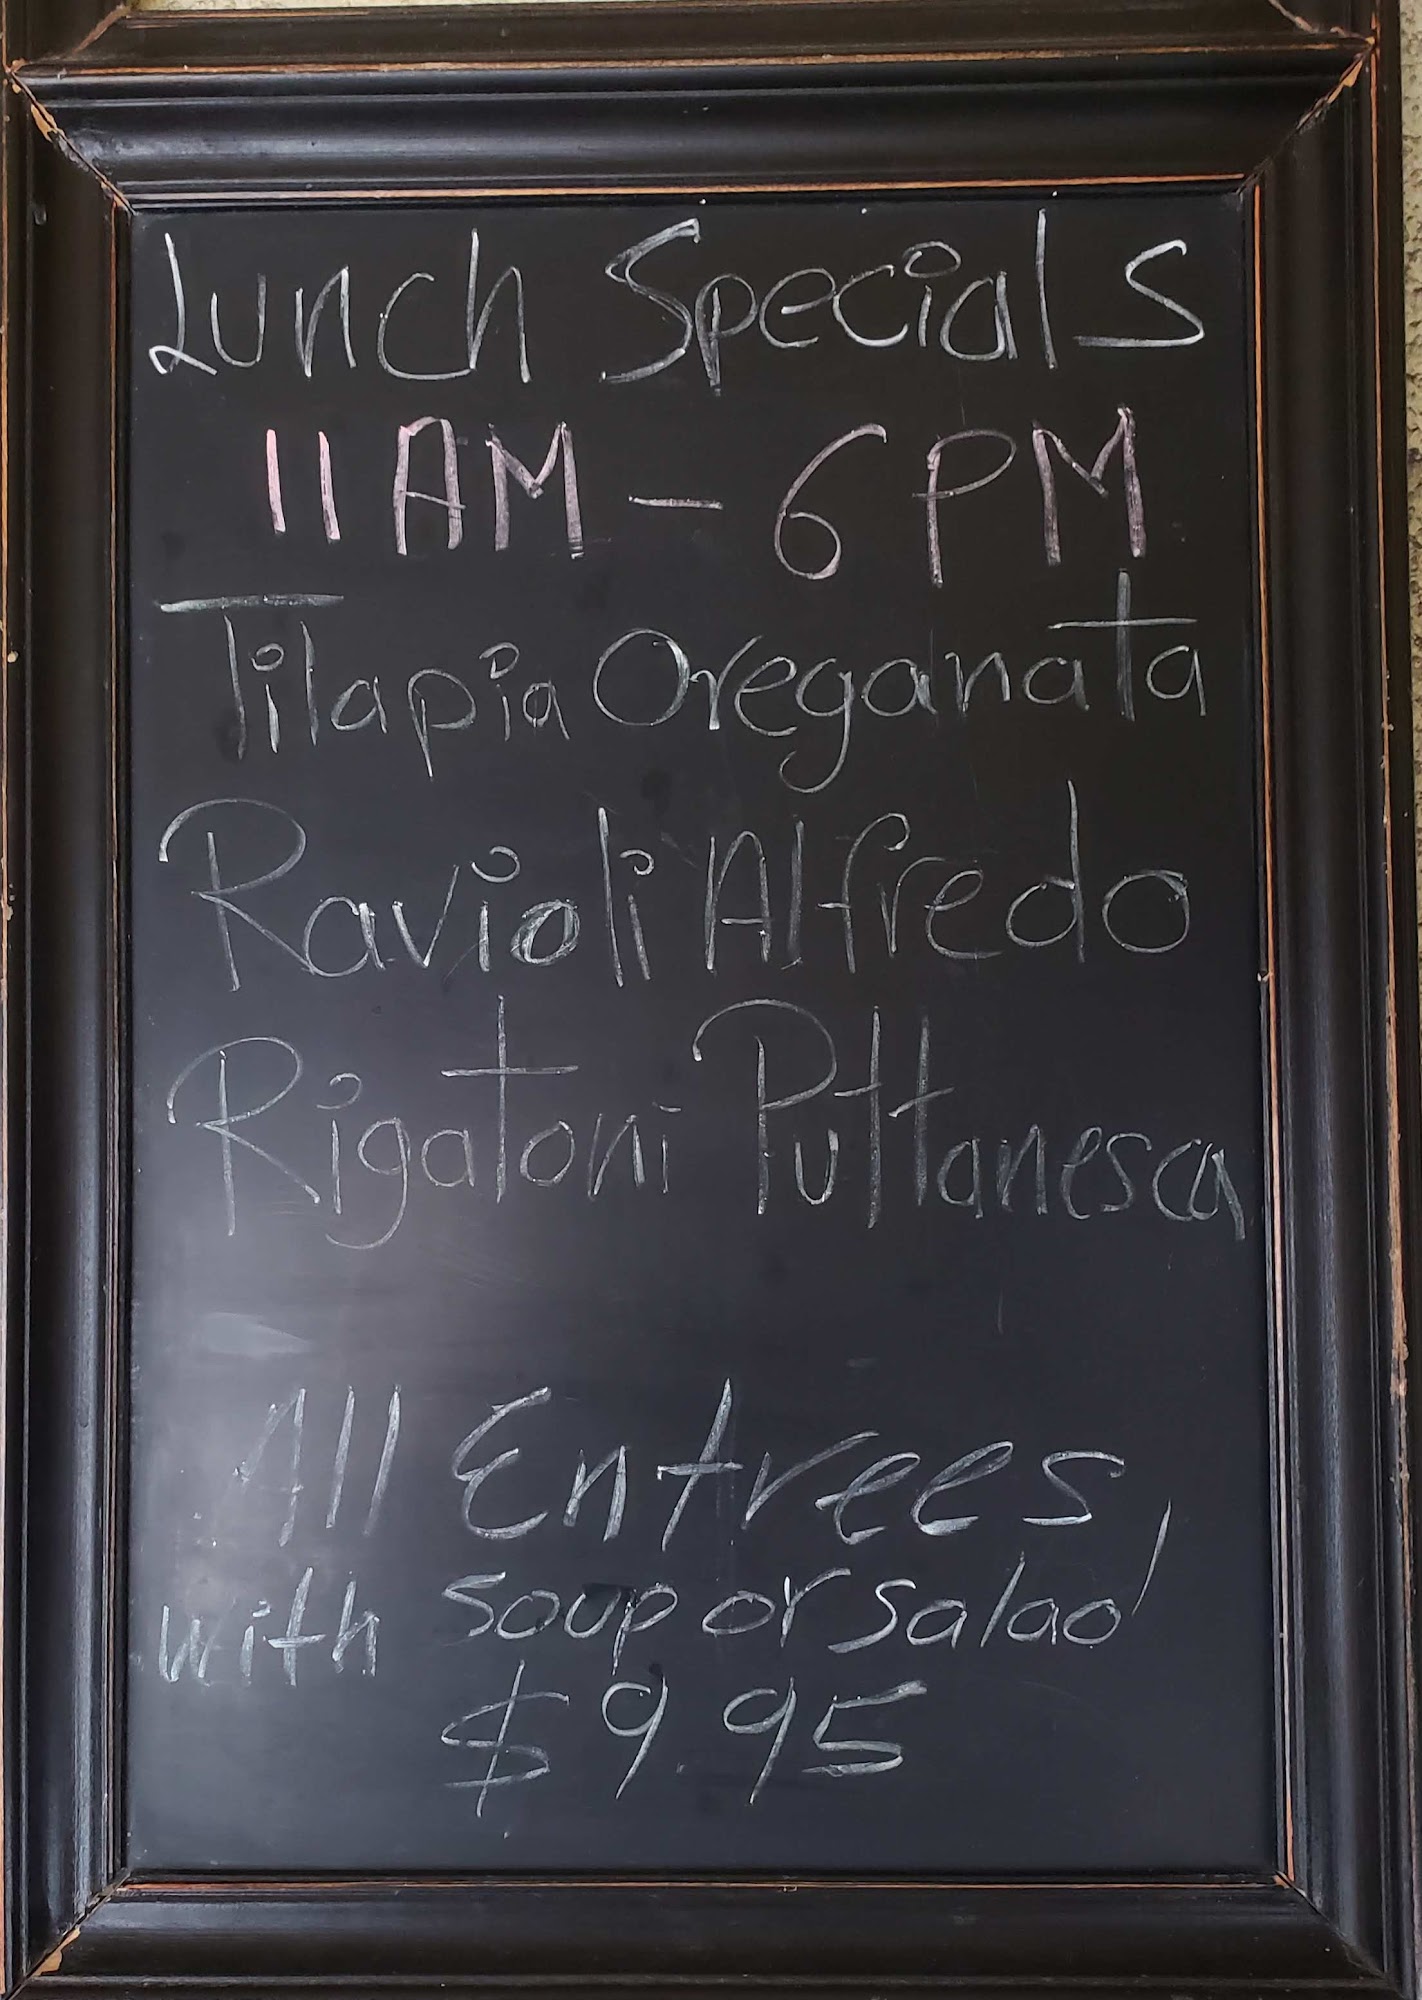 Lunch Specials
11AM - 6PM
Tilapia Oreganata
Ravioli Alfredo
Rigatoni Puttanesca
All Entrees,
with soup or salad
$9.95